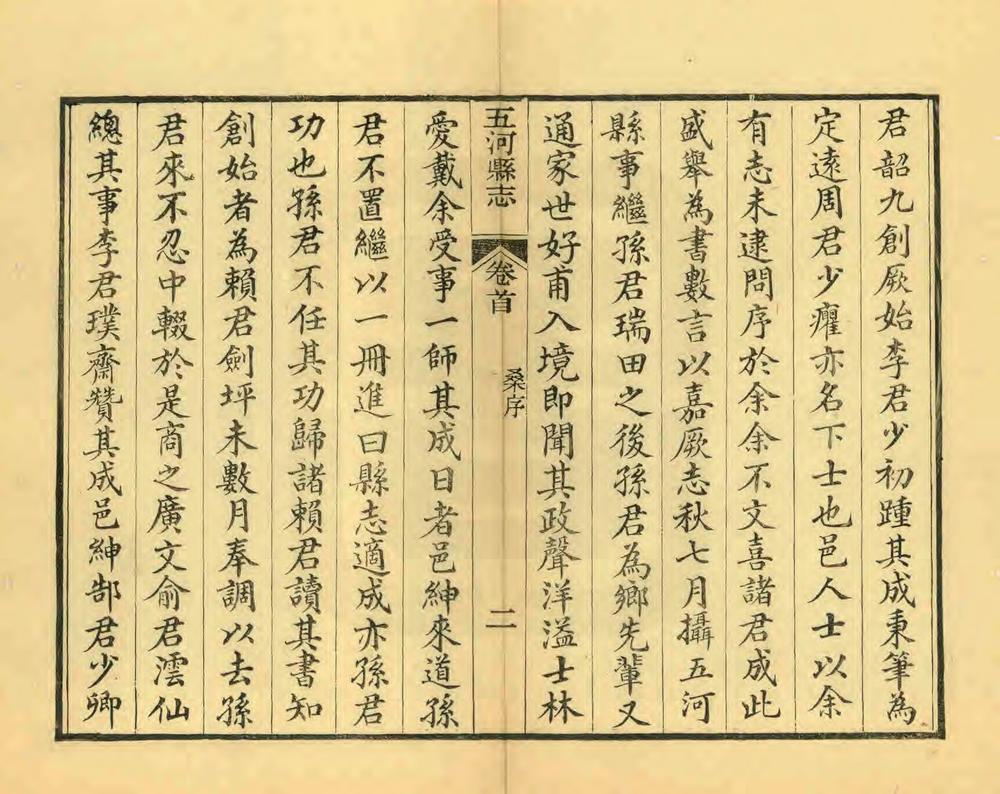 君韶九創厥始李君少初踵其成秉筆為
定遠周君少癯亦名下士也邑人士以余
有志未逮問序於余余不文喜諸君成此
盛舉為書數言以嘉厥志秋七月攝五河
縣事繼孫君瑞田之後孫君為鄉先輩又
通家世好甫入境即聞其政聲洋溢士林
五河縣志
卷首
桑序
二
愛戴余受事一師其成日者邑紳來道孫
君不置繼以一冊進曰縣志適成亦孫君
功也孫君不任其功歸諸賴君讀其書知
創始者為賴君劍坪未數月奉調以去孫
君來不忍中輟於是商之廣文俞君澐仙
總其事李君璞齋贊其成邑紳郜君少卿